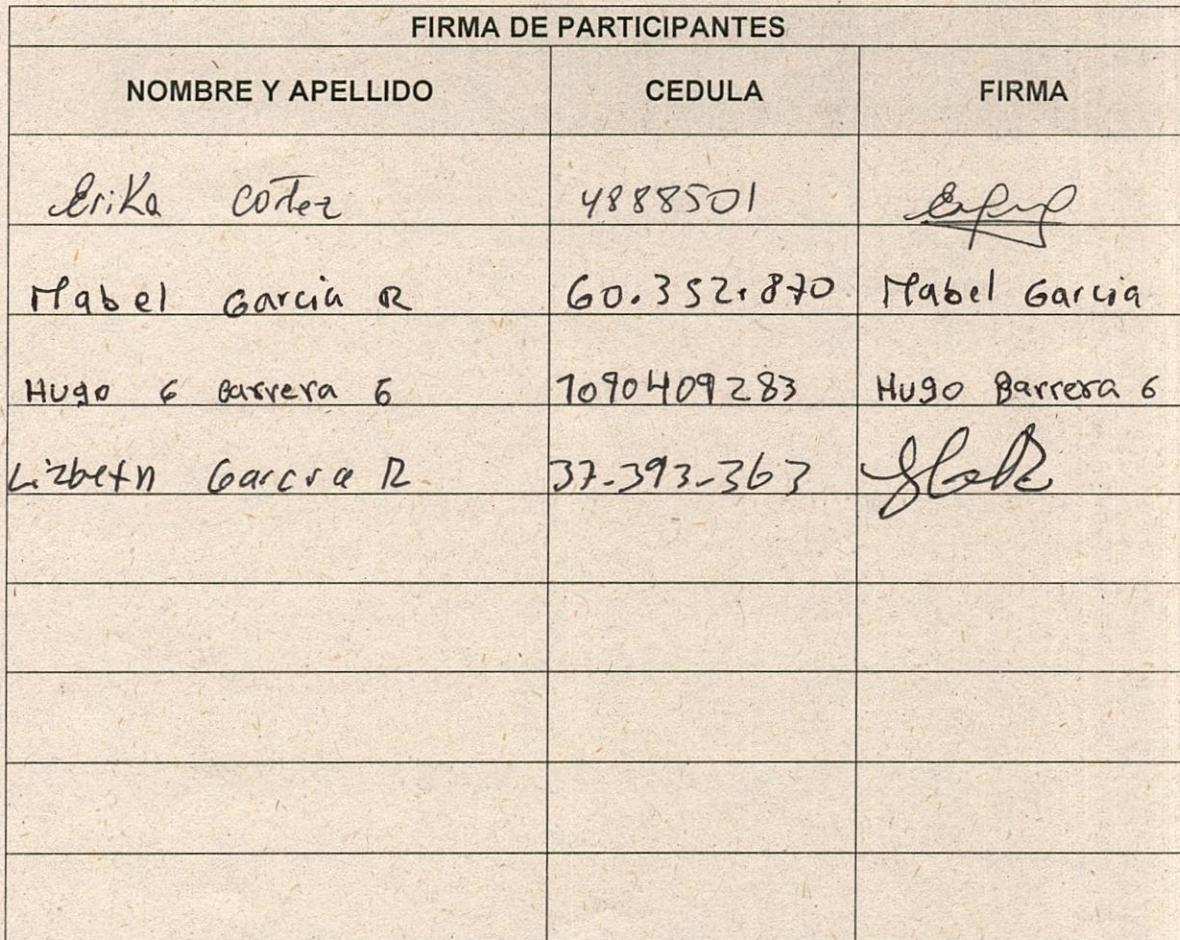 FIRMA DE PARTICIPANTES
NOMBRE Y APELLIDO CEDULA FIRMA
Erika Cortez 4888501
Mabel Garcia R 60.352.870 Mabel Garcia
Hugo G Barrera G 1090409283 Hugo Barrera G
Lizbeth Garcia R 37-393-363